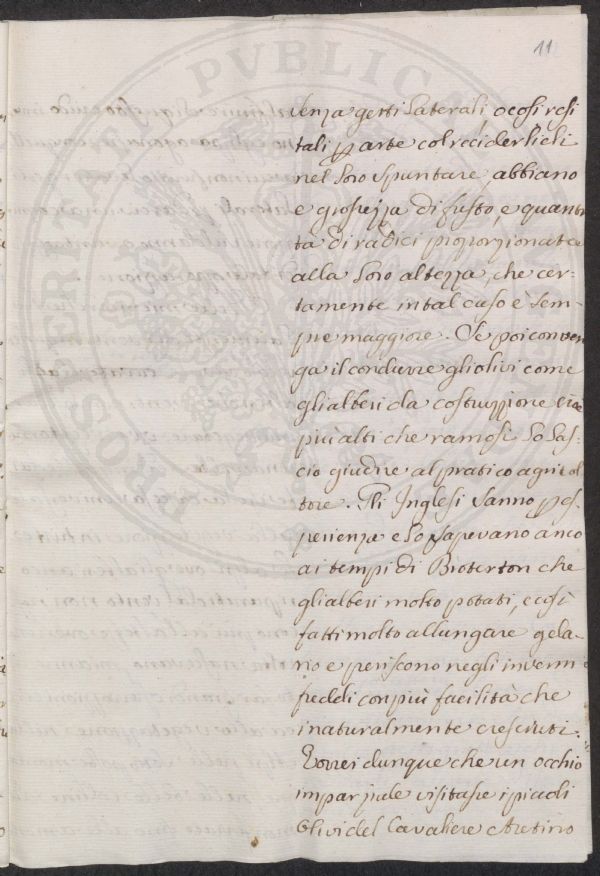 11
senza getti laterali, o cosi resi
tali p parte col reciderlieli
nel loro spuntare, abbiano
e grossezza di fusto, e quanti
tà di radici proporzionata
alla loro altezza, che cer-
tamente in tal caso è sem-
pre maggiore. Se poi conven
ga il condurre gli olivi come
gli alberi da costruzzione cioe
più alti che ramosi lo las-
cio giudice al pratico agricol
tore. Gli Inglesi sanno p es-
perienza e lo sapevano anco
ai tempi di Bioterton che
gli alberi molto potati, e cosi
fatti molto allungare gela-
no e periscono negli inverni
freddi con più facilità che
i naturalmente cresciuti.
Vorrei dunque che un occhio
imparziale visitasse i piccoli
Olivi del Cavaliere Aretino